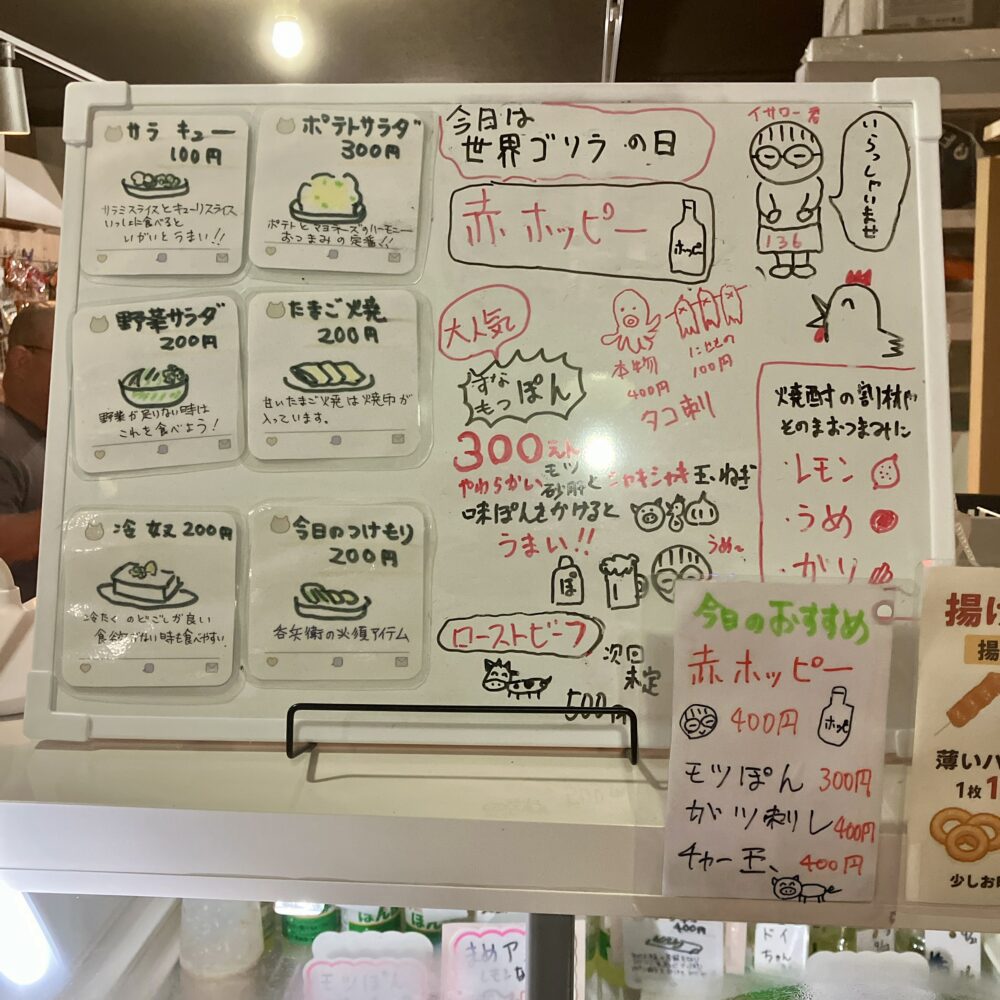 サラ キュー
100円
サラミスライスとキューリスライス
いっしょに食べると
いがいとうまい!!
ポテトサラダ
300円
ポテトとマヨネーズのハーモニー
おつまみの定番!!
野菜サラダ
200円
野菜が足りない時は
これを食べよう!
たまご焼
200円
甘いたまご焼は焼印が
入っています。
冷奴 200円
冷たくのどごしが良い
食欲がない時も食べやすい
今日のつけもり
200円
呑兵衛の必須アイテム
今日は
世界ゴリラの日
赤ホッピー
ホッピー
イサワー君
いらっしゃいませ
136
大人気
すな
もつ
ぽん
300えん
本物
400円
にせもの
100円
タコ刺
やわらかい モツ
砂肝と シャキシャキ 玉ねぎ
味ぽんをかけると
うまい!!
ぽ
うめ〜
ローストビーフ
次回
未定
500円
焼酎の割材や
そのまおつまみに
・レモン
・うめ
・がり
今日のおすすめ
赤ホッピー
400円
ホッピ
モツぽん 300円
ガツ刺し 400円
チャー玉、400円
揚げ
揚
薄いハ
1枚1
少しお
モツぽん
まめア
レモン
400円
ドイ
ちゃん